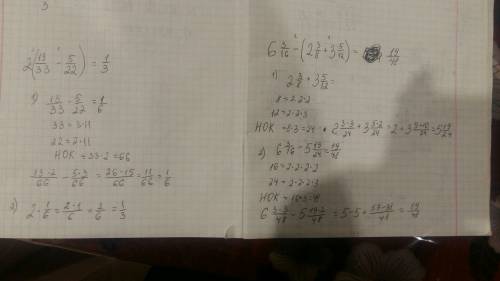 3
2(13/33 - 5/22) = 1/3
1) 13/33 - 5/22 = 1/6
33 = 3·11
22 = 2·11
НОК = 33·2 = 66
13·2/66 - 5·3/66 = 26-15/66 = 11/66 = 1/6
2) 2·1/6 = 2·1/6 = 2/6 = 1/3
6 3/16 - (2 3/8 + 3 5/12) = 19/48
1) 2 3/8 + 3 5/12 =
8 = 2·2·2
12 = 2·2·3
НОК = 8·3 = 24 2 3·3/24 + 3 5·2/24 = 2+3 9+10/24 = 5 19/24
2) 6 3/16 - 5 19/24 = 19/48
16 = 2·2·2·2
24 = 2·2·2·3
НОК = 16·3 = 48
6 3·3/48 - 5 19·2/48 = 5-5 + 57-38/48 = 19/48